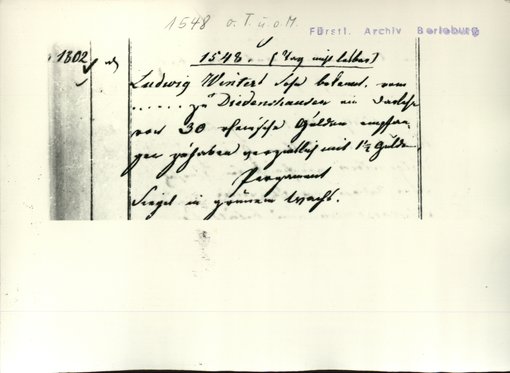 1548 o. T. u. o. M.
Fürstl. Archiv Berleburg
1802
1548. (Tag nicht lesbar)
Ludwig Winters Sohn bekennt, vom
...... zu Diedenshausen ein Darlehn
von 30 rheinische Gulden empfan-
gen zu haben verzinslich mit 1½ Gulden
Pergament
Siegel in grünem Wachs.